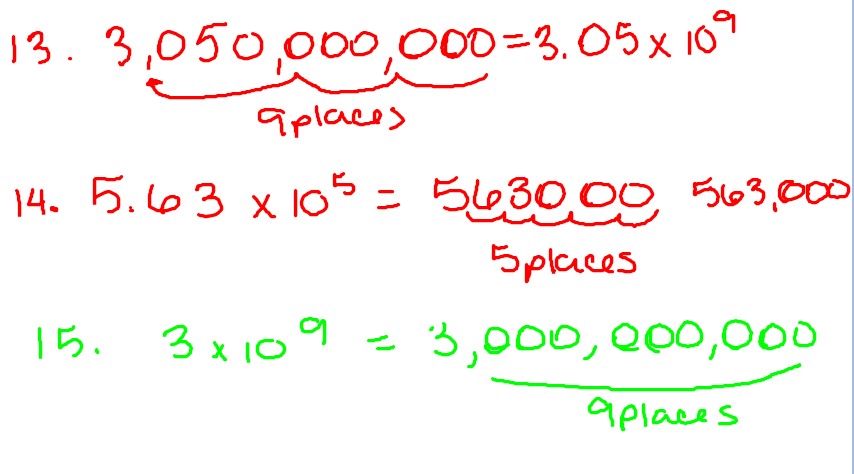 13. 3,050,000,000 = 3.05 x 10⁹
9places
14. 5.63 x 10⁵ = 563000 563,000
5places
15. 3 x 10⁹ = 3,000,000,000
9places